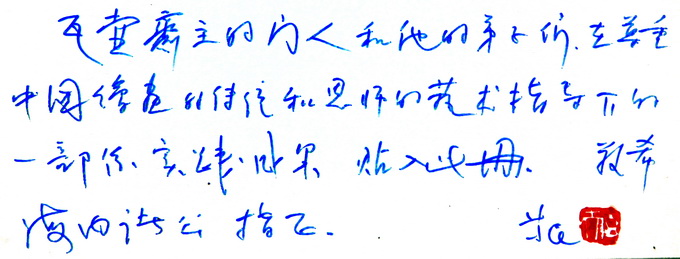 瓦壶斋主的门人和他的弟子们.在尊重
中国绘画的传统和恩师的艺术指导下的
一部份.实践.成果 贴入此册. 敬希
海内诸公 指正.